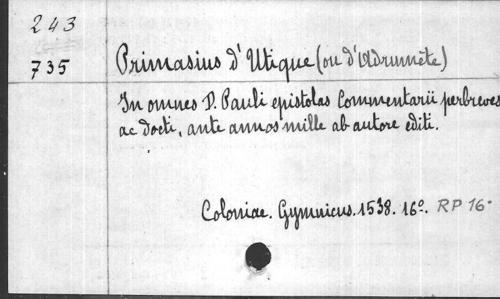 243
735 Primasius d'Utique (ou d'Adrumète)
In omnes D. Pauli epistolas Commentarii perbreves
ac docti, ante annos mille ab autore editi.
Coloniae. Gymnicus. 1538. 16º. RP 16º